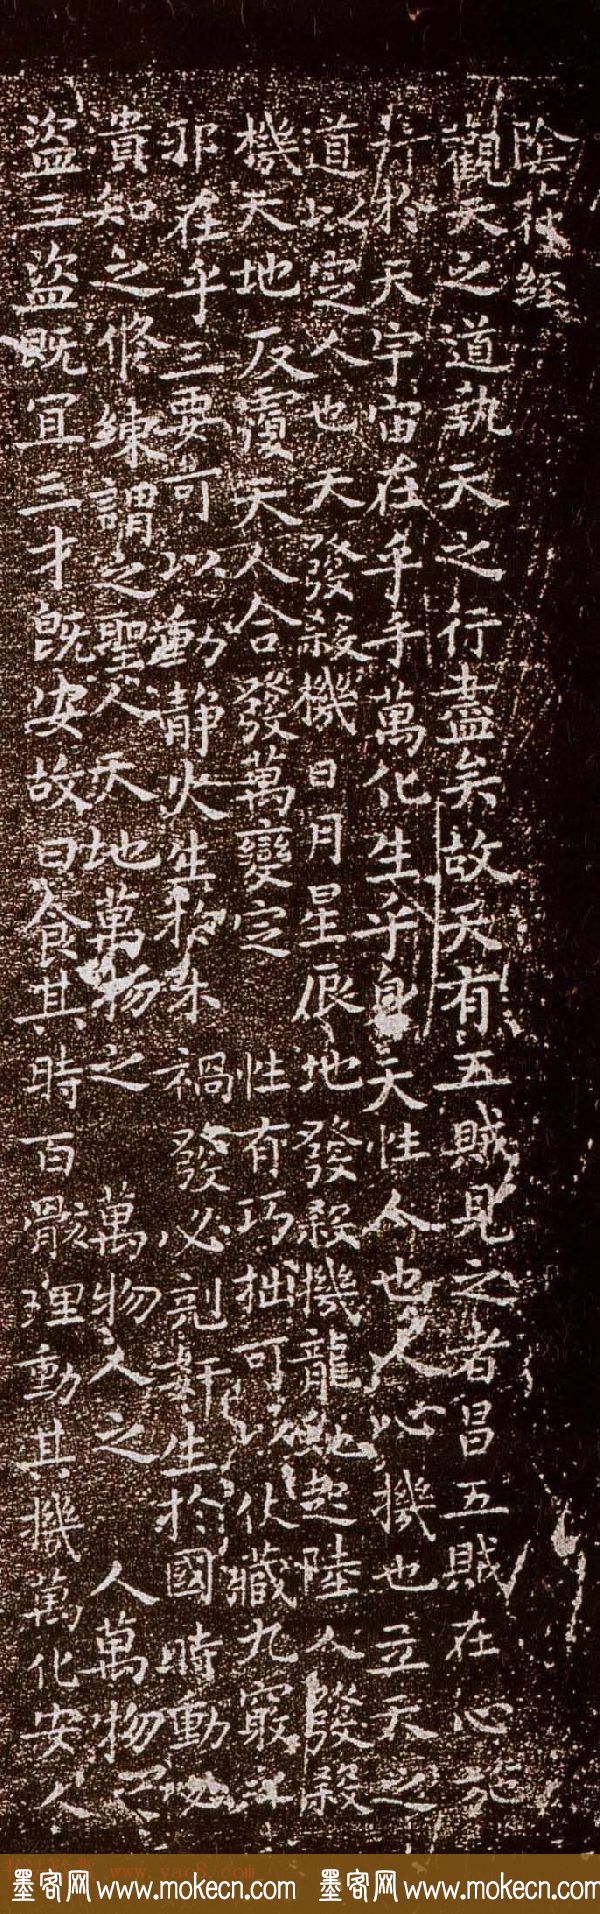 陰符經
觀天之道執天之行盡矣故天有五賊見之者昌五賊在心施
行於天宇宙在乎手萬化生乎身天性人也人心機也立天之
道以定人也天發殺機日月星辰地發殺機龍虵起陸人發殺
機天地反覆天人合發萬變定 性有巧拙可以伏藏九竅之
邪在乎三要可以動静火生於木 禍發必剋姧生於國時動必
貴知之修練謂之聖人天地萬物之 萬物人之 人萬物之
盜三盜既宜三才既安故曰食其時百骸理動其機萬化安人
墨客网 www.mokecn.com 墨客网 www.mokecn.com